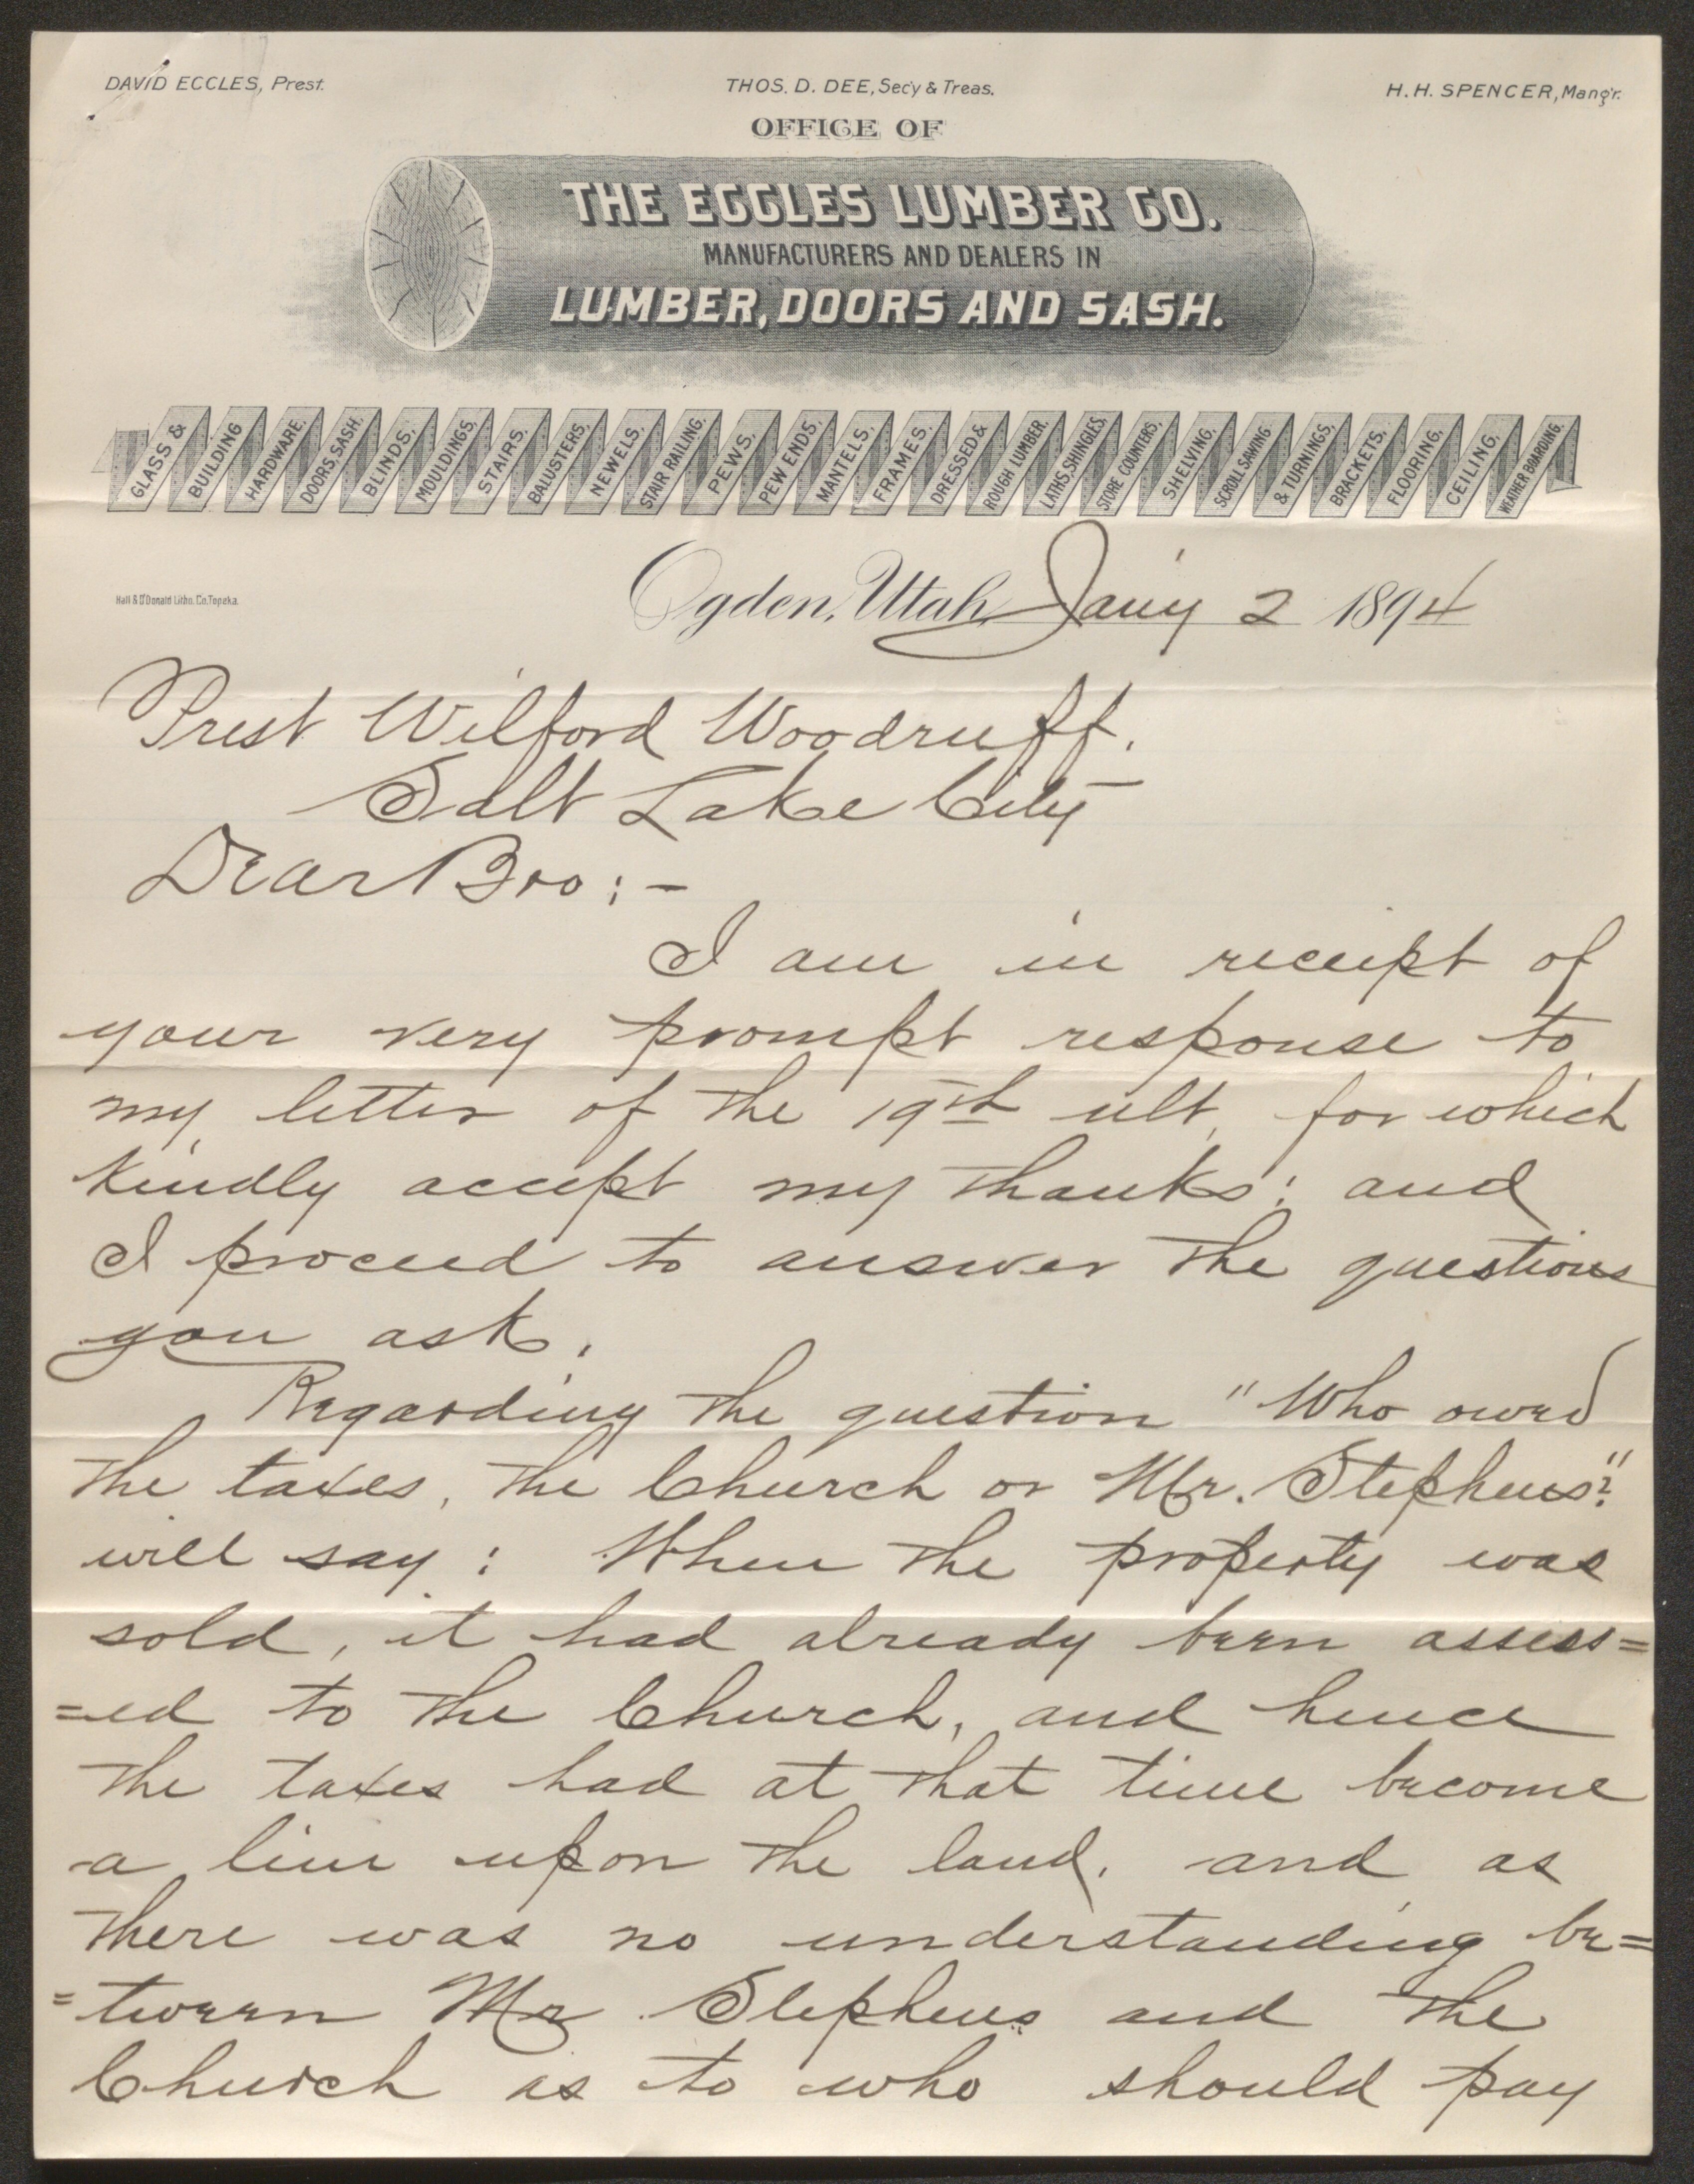 DAVID ECCLES, Prest.
THOS. D. DEE, Sec'y & Treas.
H. H. SPENCER, Mang'r.
OFFICE OF
THE ECCLES LUMBER CO.
MANUFACTURERS AND DEALERS IN
LUMBER, DOORS AND SASH.
GLASS & BUILDING HARDWARE. DOORS, SASH, BLINDS, MOULDINGS, STAIRS. BALUSTERS, NEWELS. STAIR RAILING, PEWS. PEW ENDS, MANTELS, FRAMES. DRESSED & ROUGH LUMBER. LATHS, SHINGLES, STORE COUNTERS, SHELVING, SCROLL SAWING & TURNINGS, BRACKETS, FLOORING, CEILING, WEATHER BOARDING.
Hall & O'Donald Litho. Co. Topeka.
Ogden, Utah, Jan'y 2 1894
Prest Wilford Woodruff.
Salt Lake City
Dear Bro:-
I am in receipt of
your very prompt response to
my letter of the 19th ult, for which
kindly accept my thanks; and
I proceed to answer the questions
you ask.
Regarding the question "Who owed
the taxes, the Church or Mr. Stephens?"
will say: When the property was
sold, it had already been assess=
=ed to the Church, and hence
the taxes had at that time become
a lien upon the land. and as
there was no understanding be=
=tween Mr Stephens and the
Church as to who should pay